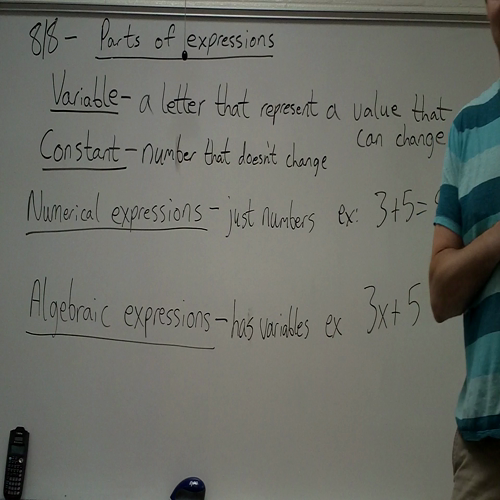 8/8 - Parts of expressions
Variable - a letter that represent a value that
can change
Constant - number that doesn't change
Numerical expressions - just numbers ex: 3+5=
Algebraic expressions - has variables ex 3x+5